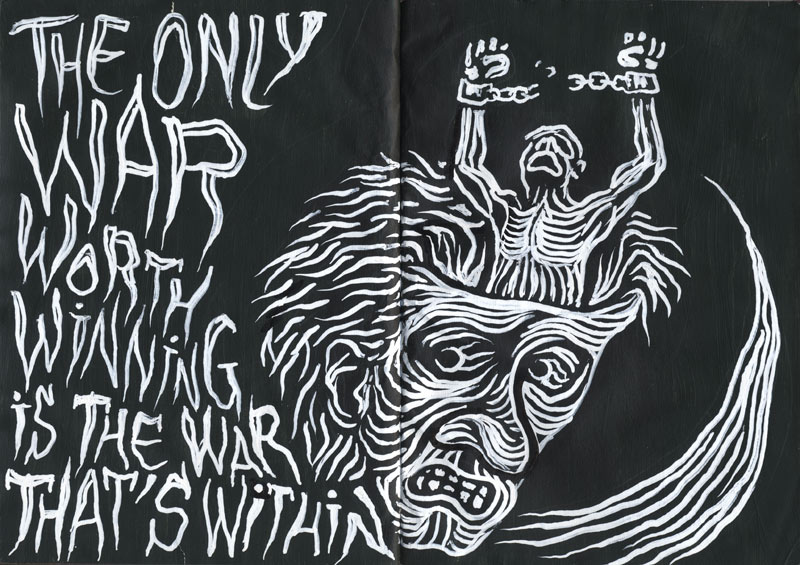 THE ONLY
WAR
WORTH
WiNNiNG
iS THE WAR
THAT'S WiTHiN